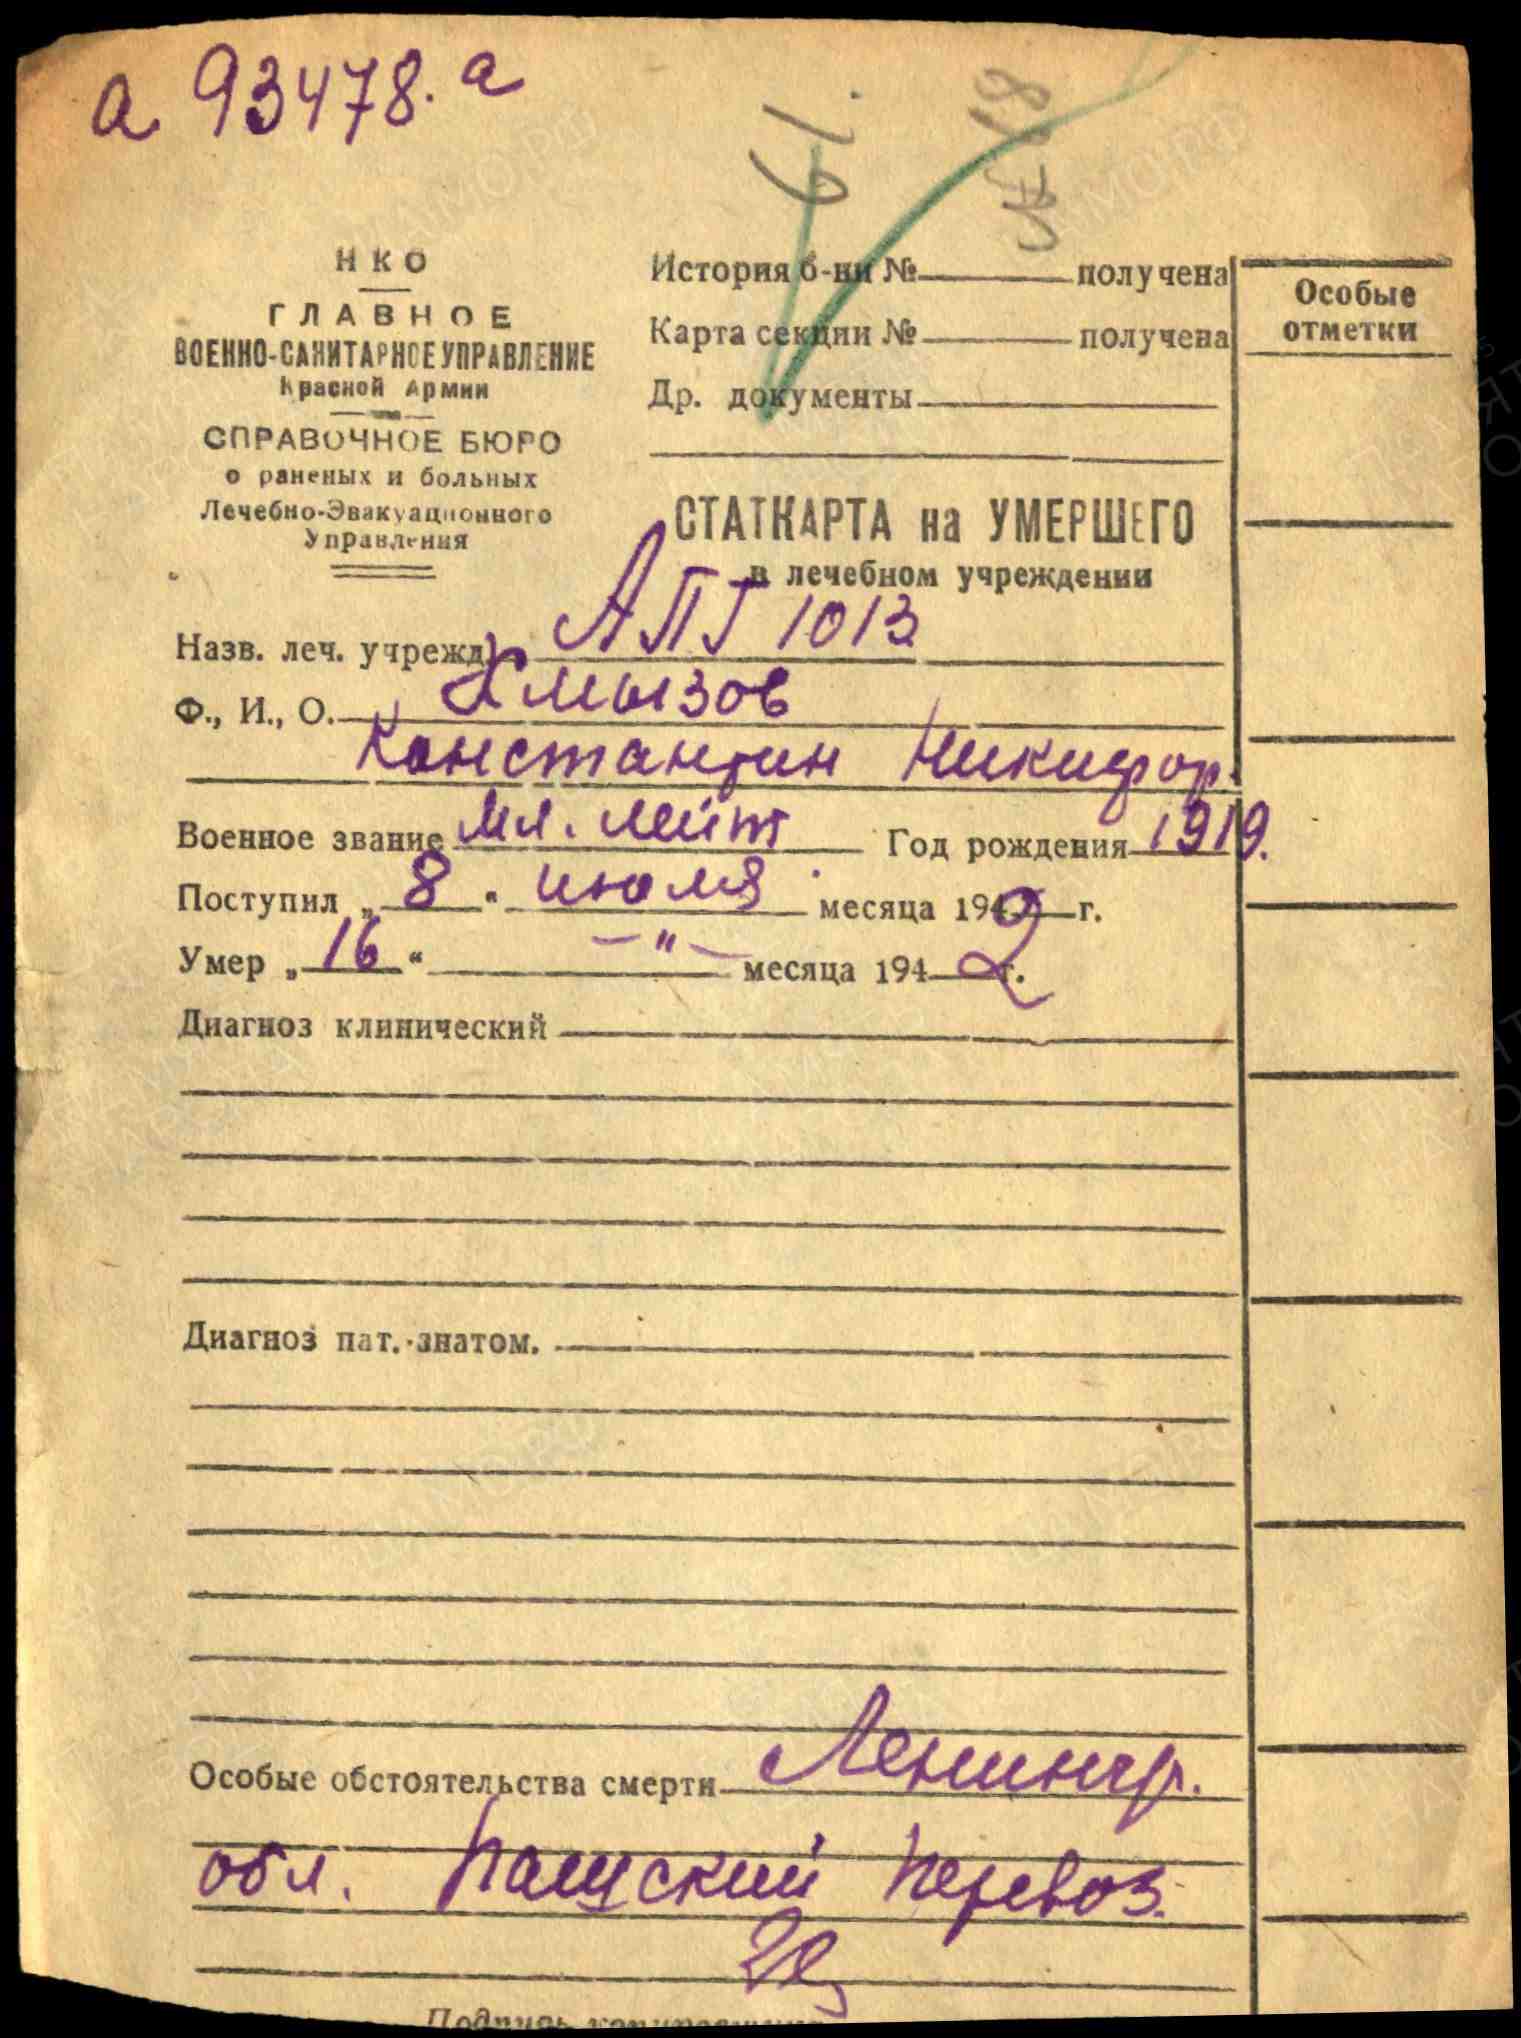 а 93478. а
61.
НКО
ГЛАВНОЕ
ВОЕННО-САНИТАРНОЕ УПРАВЛЕНИЕ
Красной Армии
СПРАВОЧНОЕ БЮРО
о раненых и больных
Лечебно-Эвакуационного
Управления
История б-ни № получена
Карта секции № получена
Др. документы
Особые
отметки
СТАТКАРТА на УМЕРШЕГО
в лечебном учреждении
Назв. леч. учрежд. АПГ 1013
Ф., И., О. Хмызов
Константин Никифор.
Военное звание мл. лейт Год рождения 1919.
Поступил „ 8 “ июля месяца 1942 г.
Умер „ 16 “ — " — месяца 1942 г.
Диагноз клинический
Диагноз пат.-анатом.
Особые обстоятельства смерти Ленингр.
обл. Пашский Перевоз.
Подпись